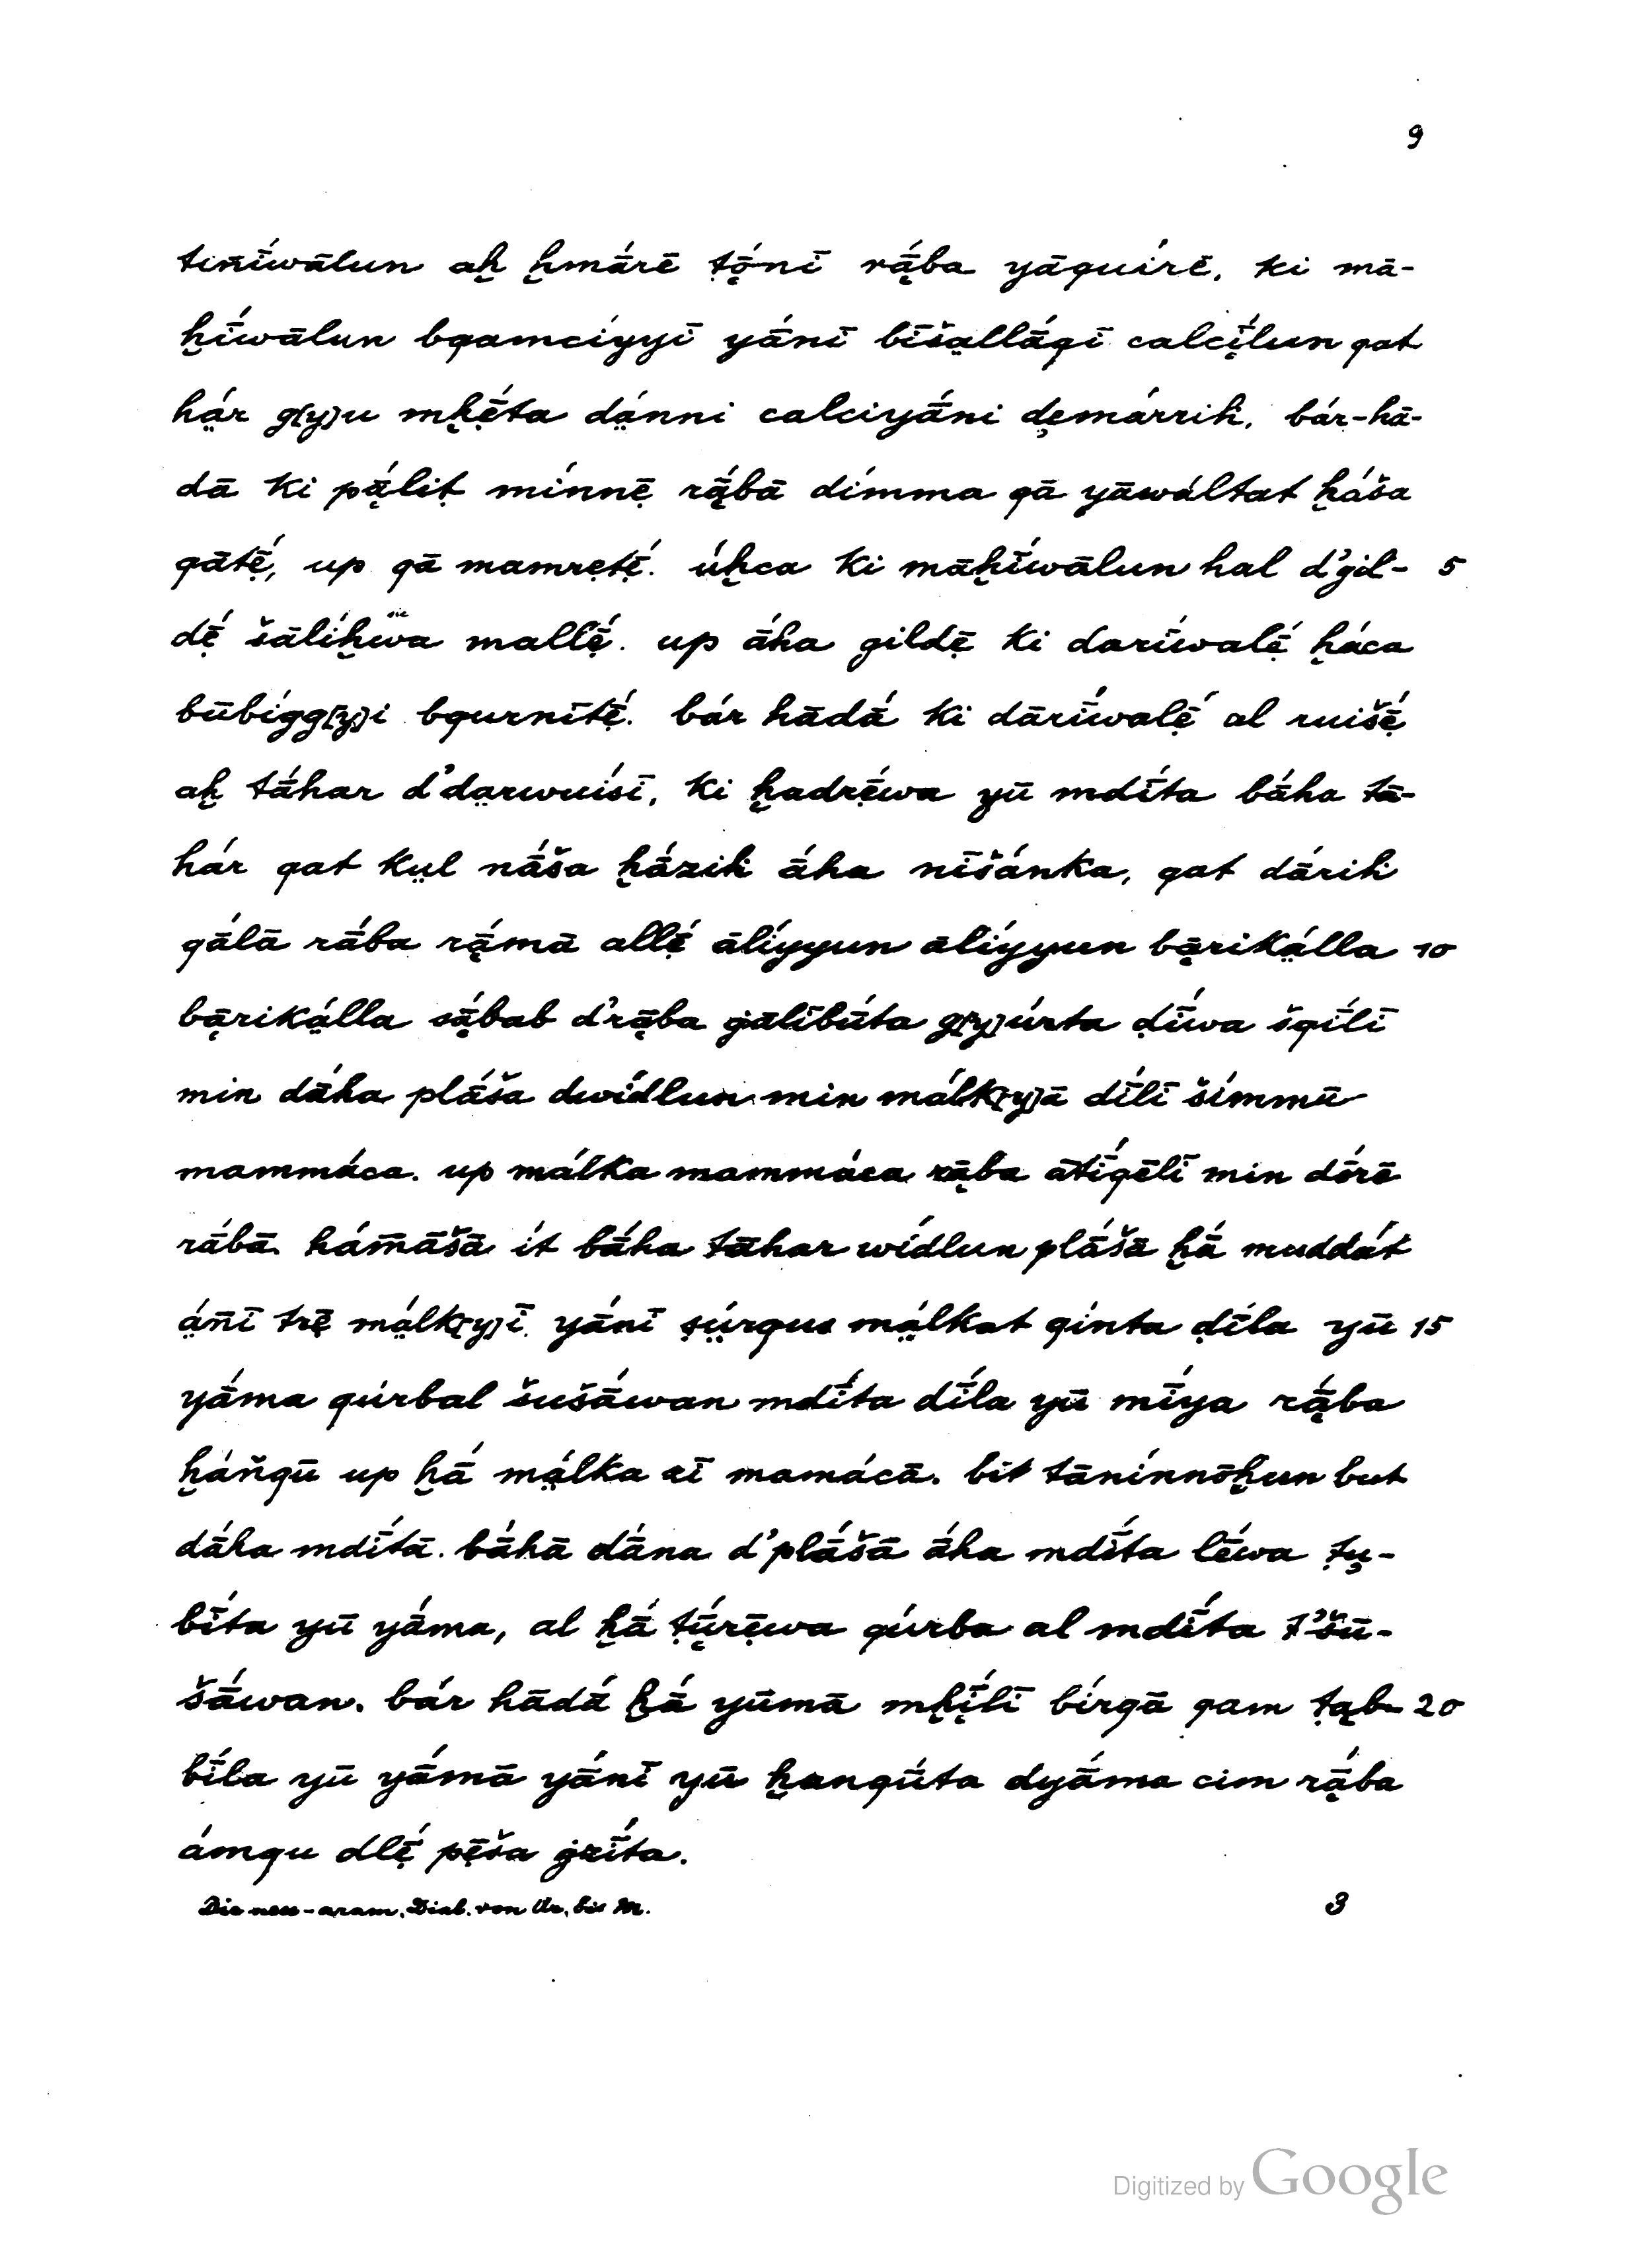 9
tinī́wālun aḫ ḫmā́rē ṭọ̄́nī rą̄́ba yāquírē, ki mā-
ḫī́wālun bqamcíyyī yā́nī bīšallā́qī calcị̄́lun qat
hạ̈́r g[y]u mḫẹ̄́ta dạ̈́nni calciyā́ni dẹmárriḥ, bár-hā-
dā ki pą̄́liṭ mínnẹ̄ rą̄́bā dímma qā yāwáltat ḫā́ša
qātẹ̄́, up qā mamrẹtẹ̄́. úḫca ki māḫī́wālun hal d'gil- 5
dẹ̄́ šālíḫwa mallẹ̄́. up ā́ha gildẹ̄ ki darī́walẹ̄́ ḫáca
sic
būbígg[y]i bqurnītẹ̄́. bár hādā́ ki dārī́walẹ̄́ al ruišẹ̄́
aḫ tā́har d'dạrwuísī, ki ḫadrẹ̄́wa yū mdī́ta bā́ha tā-
hár qat kụl nā́ša ḫā́ziḥ ā́ha nīšánka, qat dā́riḥ
qā́lā rā́ba rą̄́mā allẹ̄́ ālíyyun ālíyyun bą̄rikạ̈́lla 10
bą̄rikạ̈́lla są̄́bab d'rą̄ba ġālibū́ta g[y]ū́rta ḍī́wa šqī́lī
min dā́ha plā́ša dwídlun min málk[y]ā dī́lī šímmū
mammáca. up málka mammáca rą̄ba ātī́qēlī min dṓrē
rā́bā hám̄āšā ít bā́ha tāhar wídlun plā́šā ḫā́ muddát
ạ̈́nī trẹ̄ mạ̈́lk[y]ī yā́nī ṣụ́rqus mạ̈́lkat qínta ḍī́la yū 15
yā́ma qúrbal šušā́wan mdī́ta dī́la yū mī́ya rą̄́ba
ḫáňqū up ḫā́ mạ̈́lka zī mamácā. bit tānínnōḫun but
dā́ha mdī́tā. bā́hā dā́na d'plā́šā ā́ha mdī́ta lḗwa ṭụ-
bī́ta yū yā́ma, al ḫā́ ṭụ̄́rẹ̄wa qúrba al mdī́ta t'šū-
šā́wan. bár hādā́ ḫā́ yūmā mḫị̄́lī bírqā qam ṭąb- 20
bíla yū yā́mā yā́nī yū ḫanqū́ta dyā́ma cim rą̄́ba
ámqu dlẹ̄́ pẹ̄ša ġzī́ta.
Die neu-aram. Dial. von Ur. bis M.
3
Digitized by Google